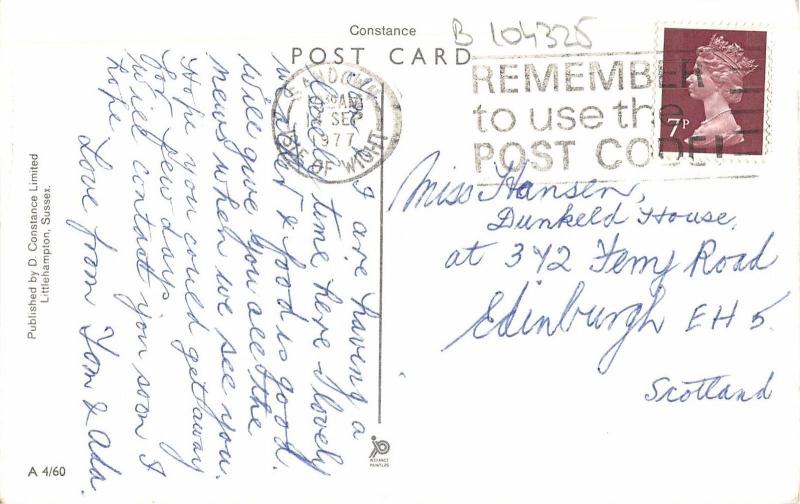 Constance
B 104325
POST CARD
REMEMBER
to use the
POST CODE!
7P
SANDOWN
AM
SEP
1977
ISLE OF WIGHT
I are having a
lovely time here - lovely
weather & food is good.
Will give you all the
news when we see you.
Hope you could get away
for few days
Will contact you soon I
hope.
Love from Tom & Ada.
Miss Hansen,
Dunkeld House,
at 342 Ferry Road
Edinburgh EH 5.
Scotland
Published by D. Constance Limited
Littlehampton, Sussex.
A 4/60